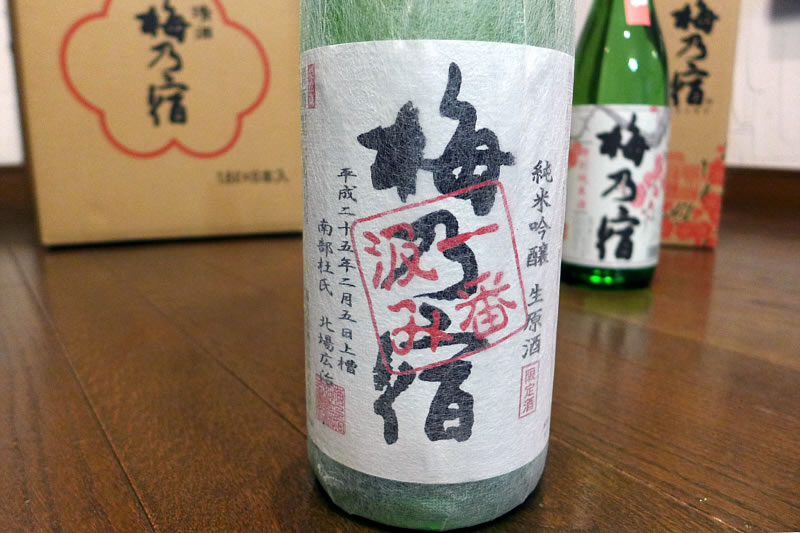 梅乃宿
一番
汲み
純米吟醸 生原酒
限定酒
平成二十五年二月五日上槽
南部杜氏 北場広治
清酒
梅乃宿
1.8ℓ×6本入
梅乃宿
梅乃宿